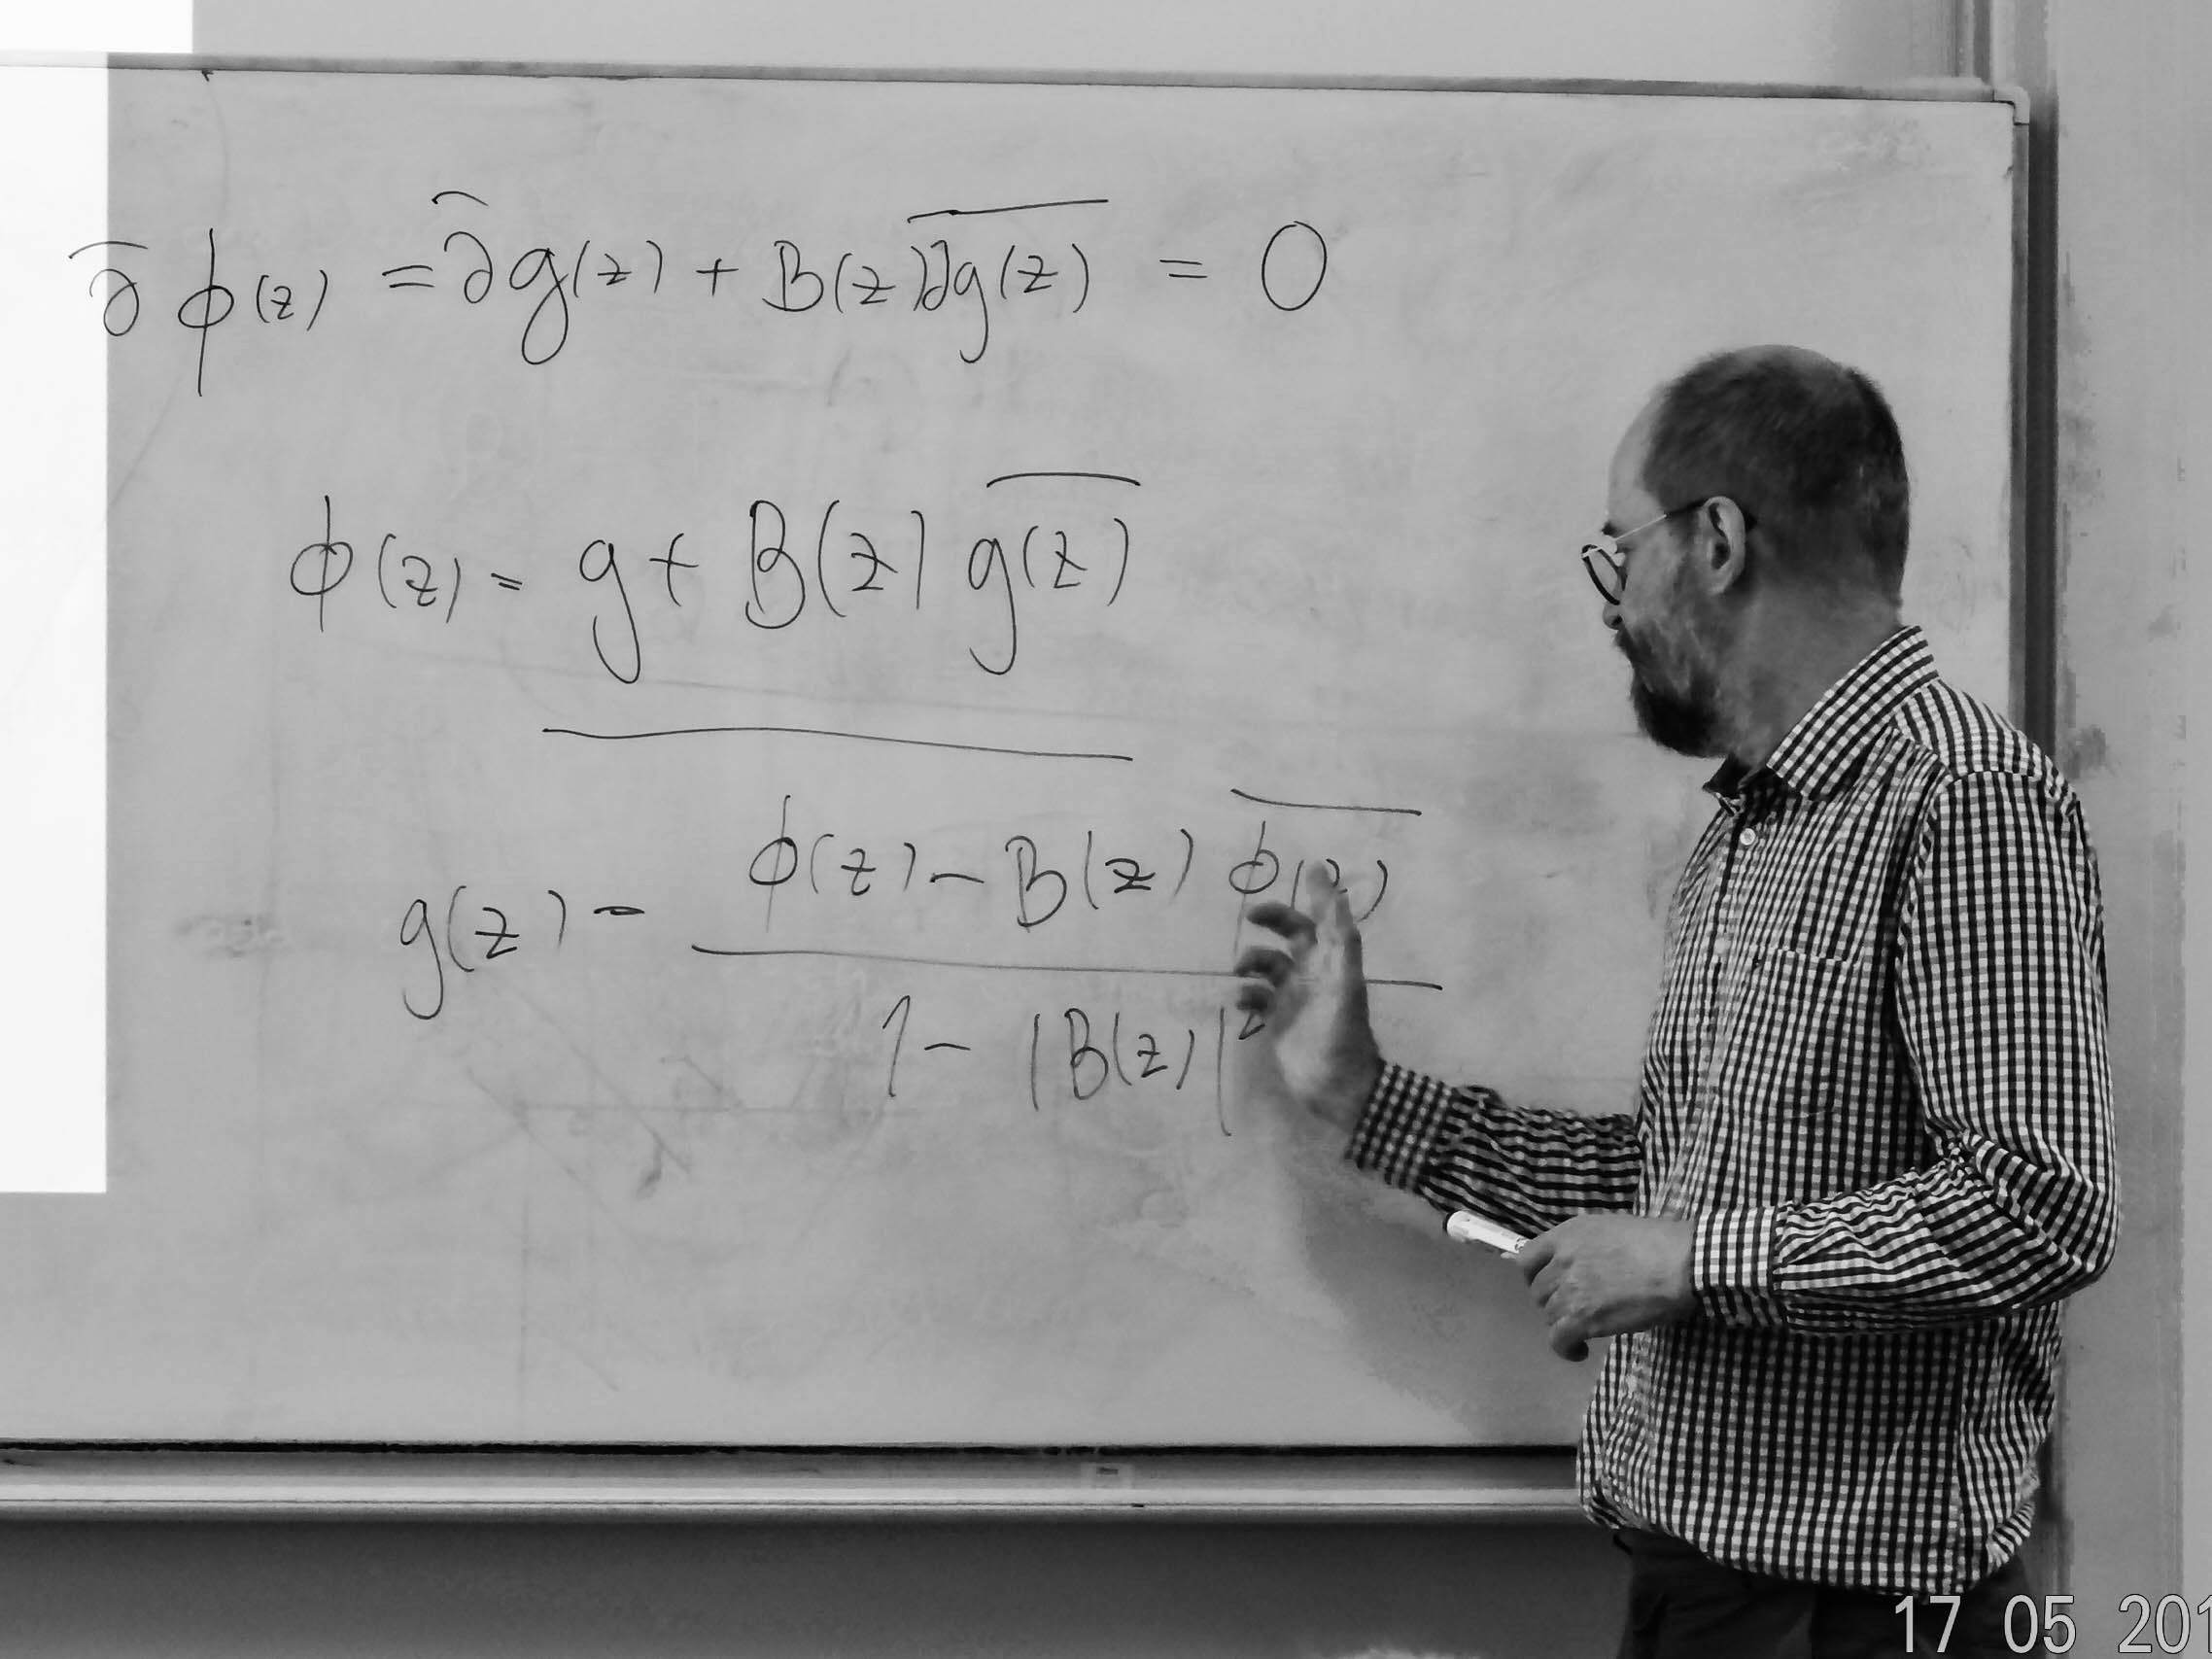 ∂̄ ϕ(z) = ∂̄g(z) + B(z) \overline{∂g(z)} = 0
ϕ(z) = g + B(z) \overline{g(z)}
g(z) = \frac{ϕ(z) - B(z) \overline{ϕ(z)}}{1 - |B(z)|²}
17 05 201